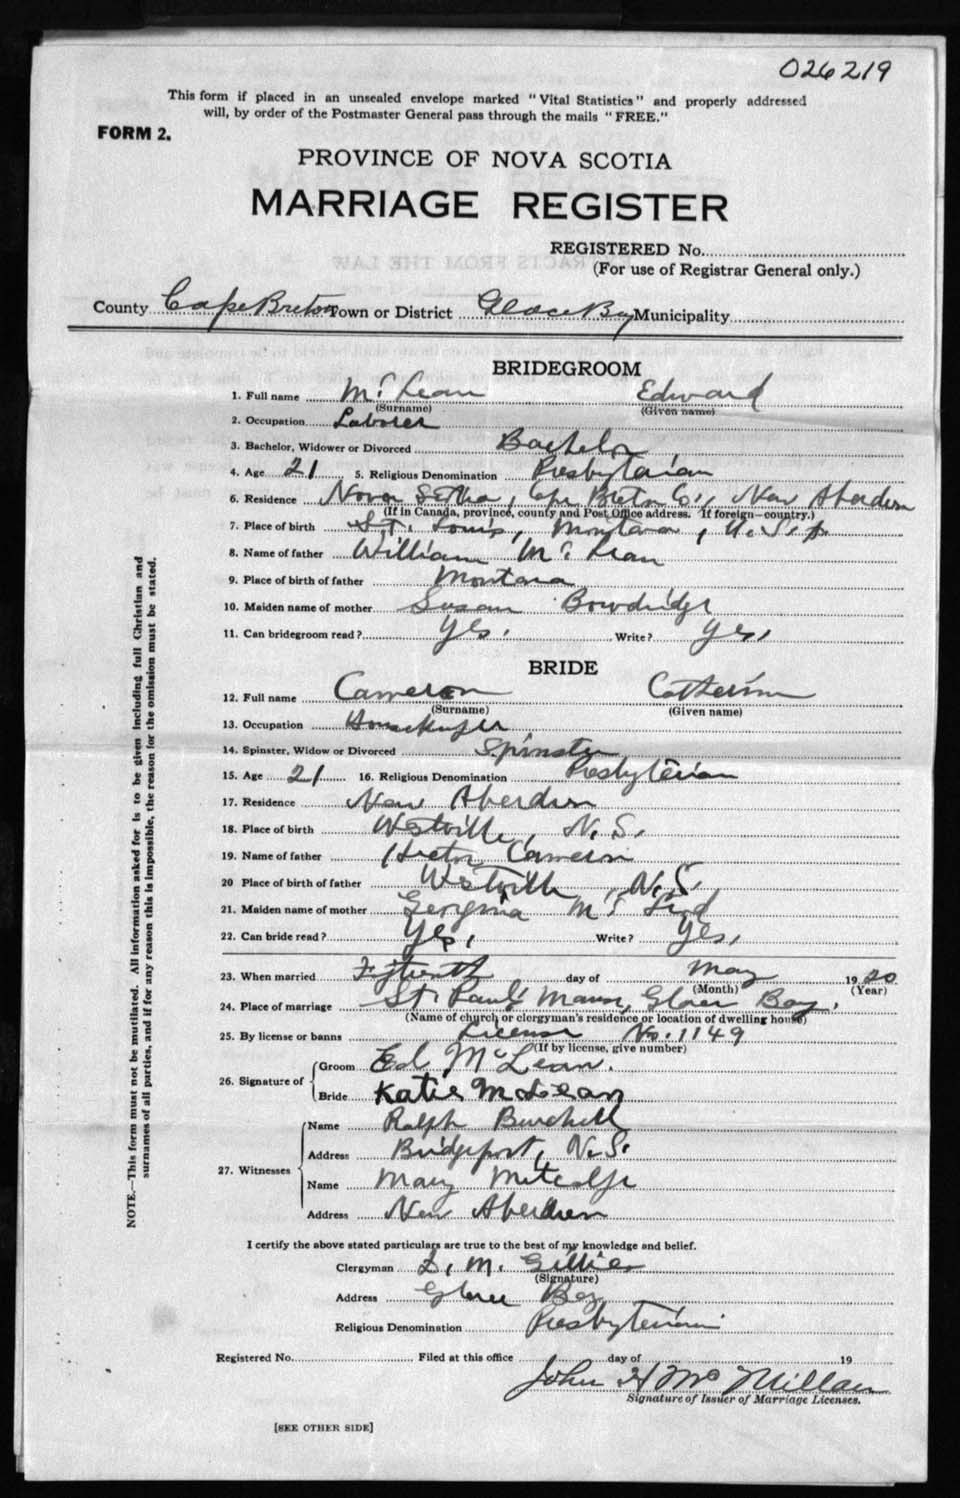 026219
This form if placed in an unsealed envelope marked "Vital Statistics" and properly addressed
will, by order of the Postmaster General pass through the mails "FREE."
FORM 2.
PROVINCE OF NOVA SCOTIA
MARRIAGE REGISTER
REGISTERED No.
(For use of Registrar General only.)
County Cape Breton Town or District Glace Bay Municipality
BRIDEGROOM
1. Full name McLean Edward
(Surname) (Given name)
2. Occupation Laborer
3. Bachelor, Widower or Divorced Bachelor
4. Age 21 5. Religious Denomination Presbyterian
6. Residence Nova Scotia, Cape Breton Co., New Aberdeen
(If in Canada, province, county and Post Office address. If foreign—country.)
7. Place of birth St. Louis, Montana, U.S.A.
8. Name of father William McLean
9. Place of birth of father Montana
10. Maiden name of mother Susan Bowdridge
11. Can bridegroom read? Yes. Write? Yes,
BRIDE
12. Full name Cameron Catherine
(Surname) (Given name)
13. Occupation Housekeeper
14. Spinster, Widow or Divorced Spinster
15. Age 21 16. Religious Denomination Presbyterian
17. Residence New Aberdeen
18. Place of birth Westville, N.S.
19. Name of father Hector Cameron
20 Place of birth of father Westville N.S.
21. Maiden name of mother Mc
22. Can bride read? Yes, Write? Yes,
23. When married Fifteenth day of May 1920
(Month) (Year)
24. Place of marriage St. Paul's Manse, Glace Bay.
(Name of church or clergyman's residence or location of dwelling house)
25. By license or banns License No. 1149
(If by license, give number)
26. Signature of
Groom Ed McLean.
Bride Katie McLean
27. Witnesses
Name Ralph Burchell
Address Bridgeport, N.S.
Name Mary Metcalfe
Address New Aberdeen
I certify the above stated particulars are true to the best of my knowledge and belief.
Clergyman D. M. Gillies
(Signature)
Address Glace Bay
Religious Denomination Presbyterian
Registered No. Filed at this office day of 19
John H McMillan
Signature of Issuer of Marriage Licenses.
[SEE OTHER SIDE]
NOTE.—This form must not be mutilated. All information asked for is to be given including full Christian and
surnames of all parties, and if for any reason this is impossible, the reason for the omission must be stated.